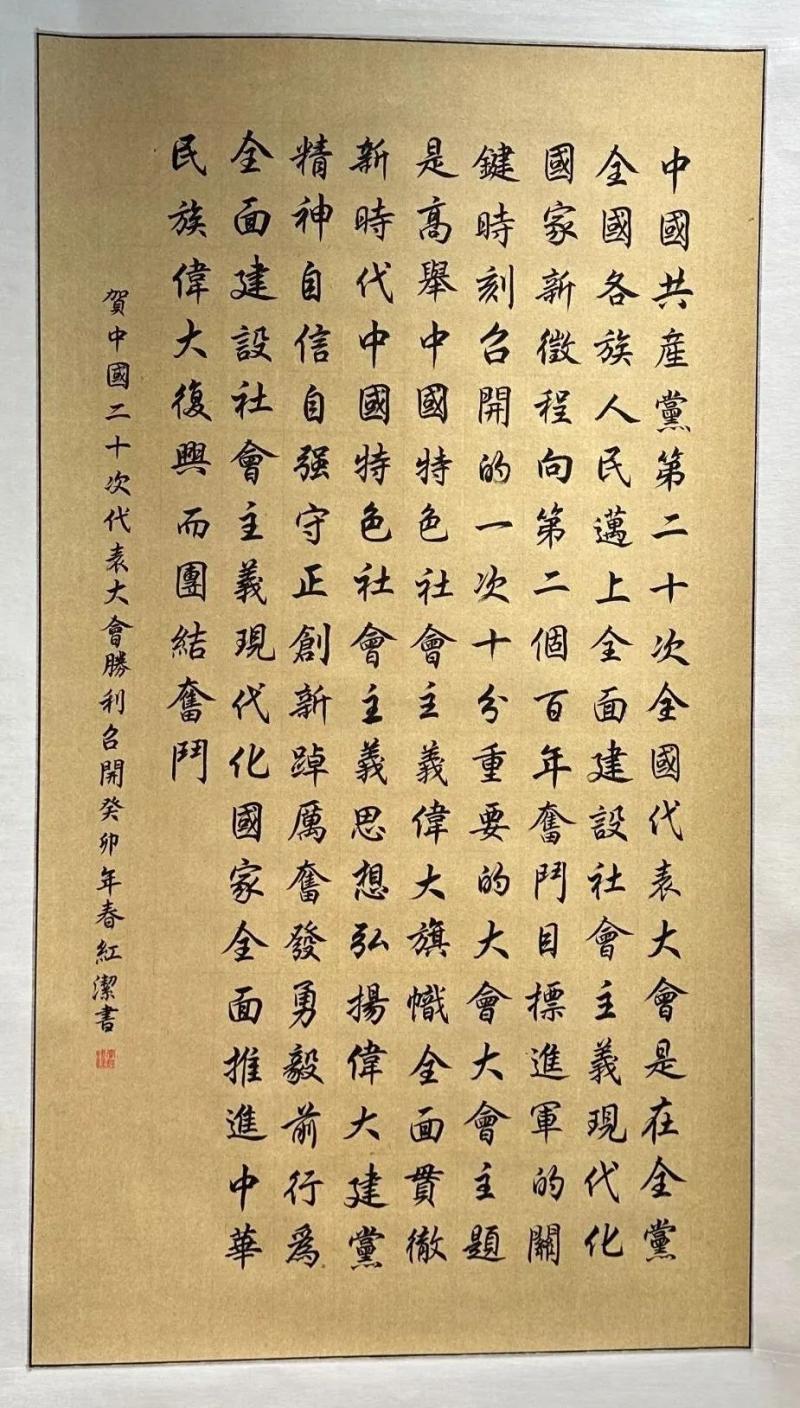 中國共産黨第二十次全國代表大會是在全黨
全國各族人民邁上全面建設社會主義現代化
國家新徵程向第二個百年奮鬥目標進軍的關
鍵時刻召開的一次十分重要的大會大會主題
是高舉中國特色社會主義偉大旗幟全面貫徹
新時代中國特色社會主義思想弘揚偉大建黨
精神自信自强守正創新踔厲奮發勇毅前行爲
全面建設社會主義現代化國家全面推進中華
民族偉大復興而團結奮鬥
賀中國二十次代表大會勝利召開癸卯年春紅潔書